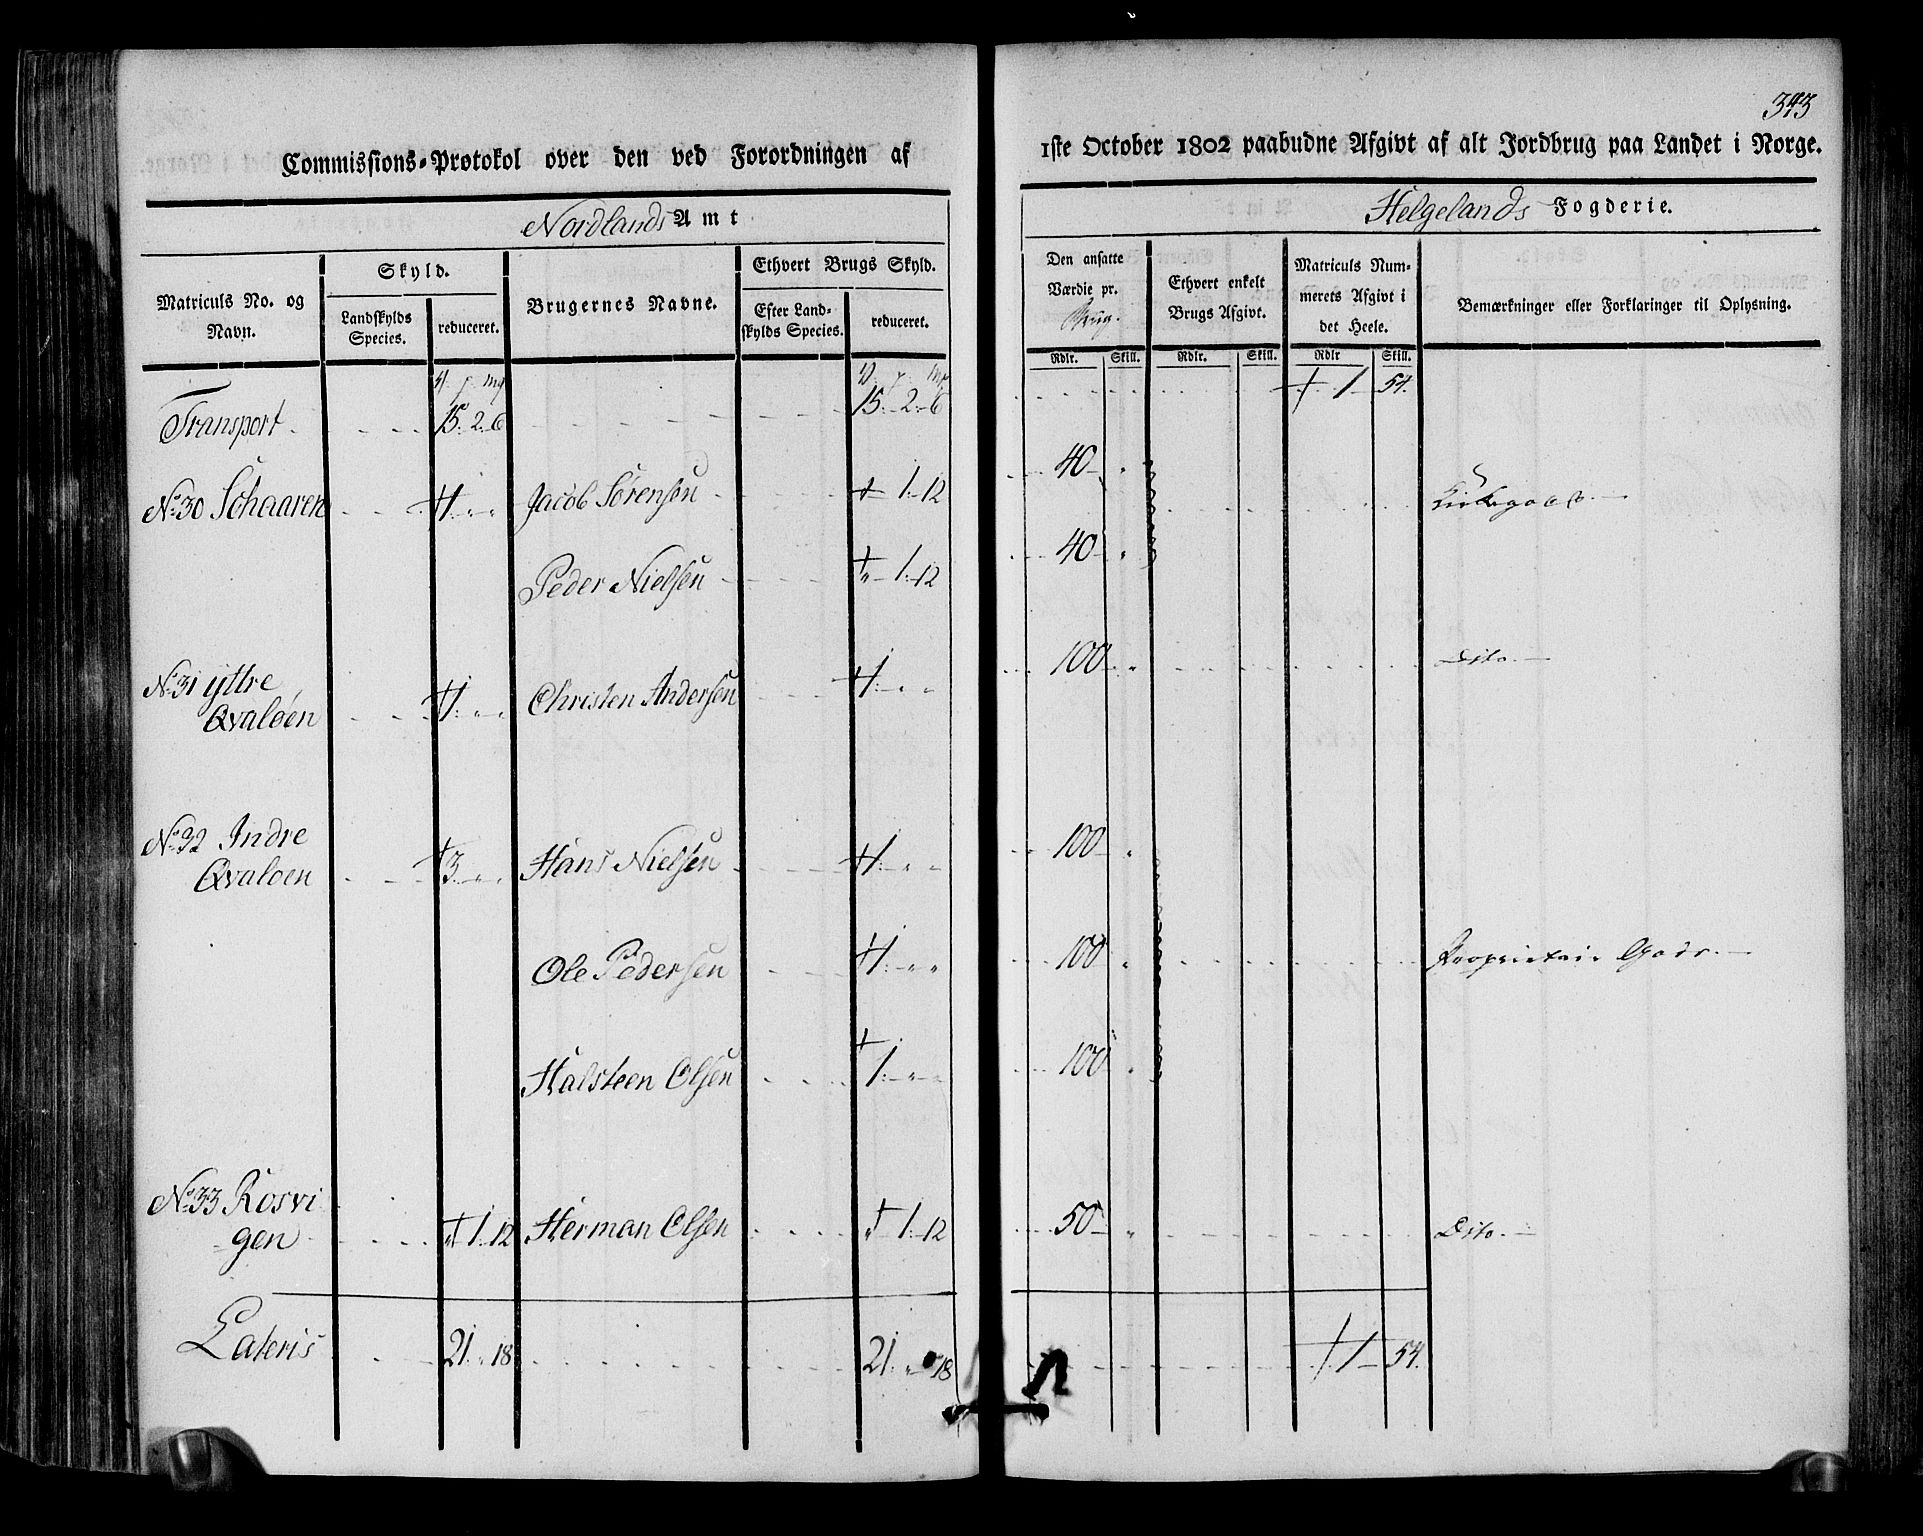 343
Commissions-Protokol over den ved Forordningen af
1ste October 1802 paabudne Afgivt af alt Jordbrug paa Landet i Norge.
Nordlands Amt
Helgelands Fogderie.
Matriculs No. og Navn.
Skyld.
Landskylds Species.
reduceret.
Brugernes Navne.
Ethvert Brugs Skyld.
Efter Landskylds Species.
reduceret.
Den ansatte Værdie pr. Brug.
Ethvert enkelt Brugs Afgivt.
Matriculs Nummerets Afgivt i det Heele.
Bemærkninger eller Forklaringer til Oplysning.
Rdlr. Skill. Rdlr. Skill. Rdlr Skill.
Transport 15. 2. 6 15. 2. 6 1 54.
No. 30 Schaaren 1 Jacob Sørensen 1. 12 40
Peder Nielsen 1. 12 40
No. 31 yttre 100 Dito.
Qvaløen 1 Christen Andersen 1
No. 32 Indre 100
Qvaløen 3 Hans Nielsen 1
Ole Pedersen 1 100 Proprietair Gods.
Halsteen Olsen 1 100
No. 33 Rosvi
gen 1. 12 Herman Olsen 1. 12 50 Dito.
Lateris 21. " 18 21. " 18 1 54.